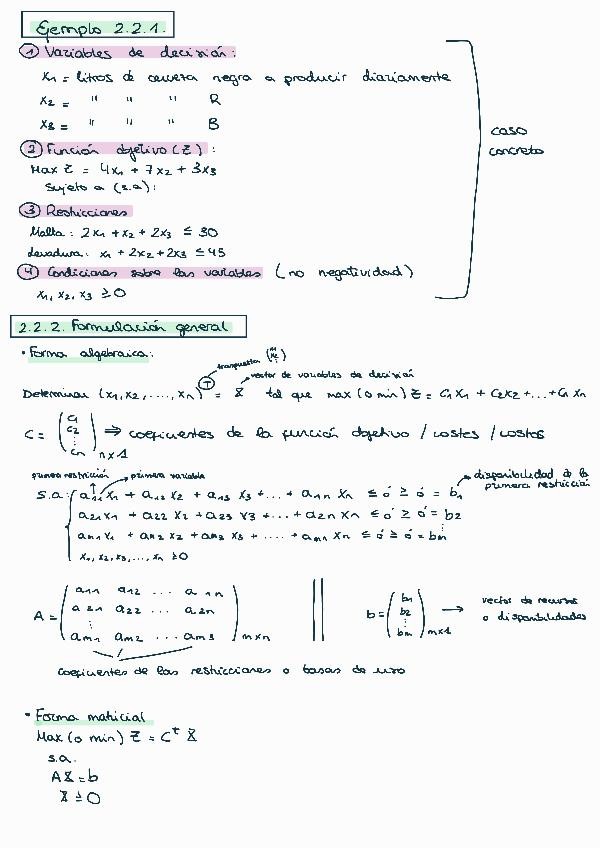 Ejemplo 2.2.1.
① Variables de decisión:
x1 = litros de cerveza negra a producir diariamente
x2 = " " " R
x3 = " " " B
② Función objetivo (Z):
Max Z = 4x1 + 7x2 + 3x3
Sujeto a (s.a):
③ Restricciones
Malta: 2x1 + x2 + 2x3 ≤ 30
Levadura: x1 + 2x2 + 2x3 ≤ 45
④ Condiciones sobre las variables (no negatividad)
x1, x2, x3 ≥ 0
caso
concreto
2.2.2. Formulación general
• Forma algebraica:
transpuesta (x1 x2 ⋮)
vector de variables de decisión
Determinar (x1, x2, ..., xn)^T = X tal que max (o min) Z = C1X1 + C2X2 + ... + Cn Xn
C = (C1 C2 ⋮ Cn) n×1 ⇒ coeficientes de la función objetivo / costes / costos
primera restricción primera variable
disponibilidad de la
primera restricción
s.a: a11 X1 + a12 X2 + a13 X3 + ... + a1n Xn ≤ ó ≥ ó = b1
a21X1 + a22 X2 + a23 X3 + ... + a2n Xn ≤ ó ≥ ó = b2
am1X1 + am2 X2 + am3 X3 + .... + amn Xn ≤ ó ≥ ó = bm
X1, X2, X3, ..., Xn ≥ 0
A = (a11 a12 ... a1n
a21 a22 ... a2n
⋮
am1 am2 ... am3) m×n
b = (b1 b2 ⋮ bm) m×1 → vector de recursos
o disponibilidades
coeficientes de las restricciones o tasas de uso
• Forma matricial
Max (o min) Z = C^t X
s.a.
AX = b
X ≥ 0